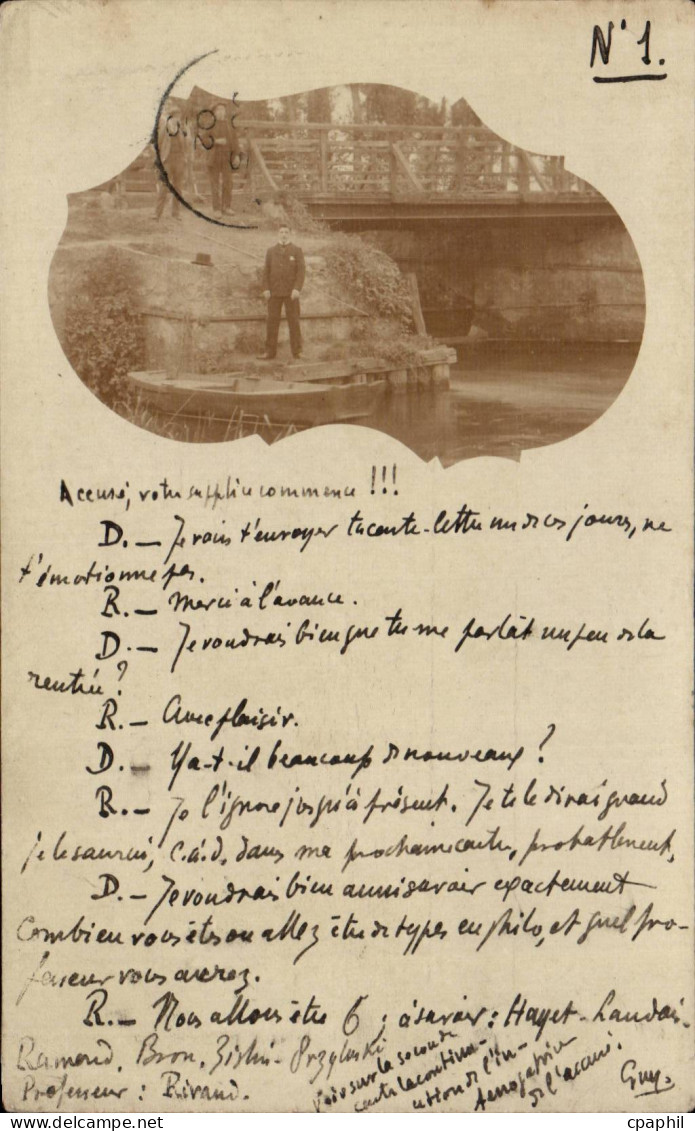 N° 1.
02
Accusé, votre supplice commence !!!
D. — Je vais t'envoyer ta carte-lettre un de ces jours, ne
t'émotionne pas.
R. — Merci à l'avance.
D. — Je voudrais bien que tu me parlât un peu de la
rentrée ?
R. — Avec plaisir.
D. — Y a-t-il beaucoup de nouveaux ?
R. — Je l'ignore jusqu'à présent. Je te le dirai quand
je le saurai, c.à.d. dans ma prochaine carte, probablement,
D. — Je voudrais bien aussi savoir exactement
combien vous êtes ou allez être de types en philo, et quel pro-
fesseur vous aurez.
R. — Nous allons être 6 ; à savoir : Hayet - Landais -
Ramond, Bron, Przyluski
Professeur : Rivaud.
Voir sur la seconde
carte la continu-
ation de l'in-
terrogatoire
de l'accusé.
Guy.